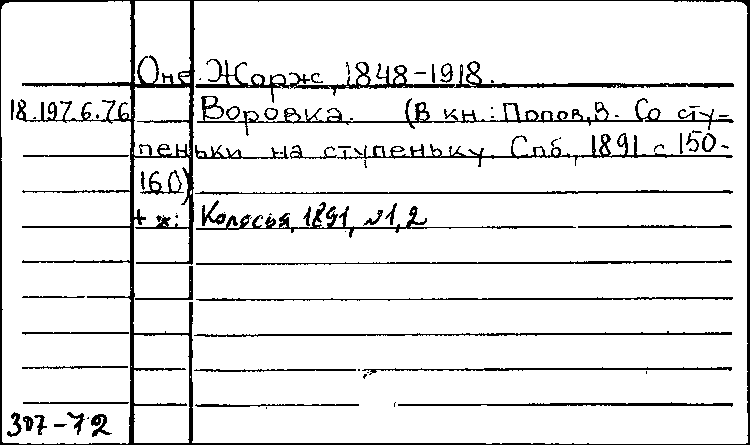 Оне Жорж, 1848-1918.
18.197.6.76 Воровка. (В кн.: Попов, В. Со сту-
пеньки на ступеньку. Спб., 1891 с 150-
160)
+ ж: Колосья, 1891, №1,2
307-72